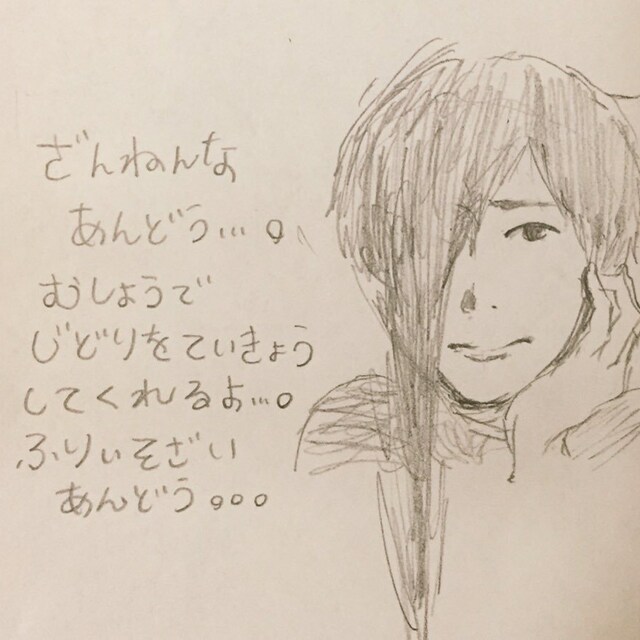 ざんねんな
あんどう…。
むしょうで
じどりをていきょう
してくれるよ…。
ふりぃそざい
あんどう。。。